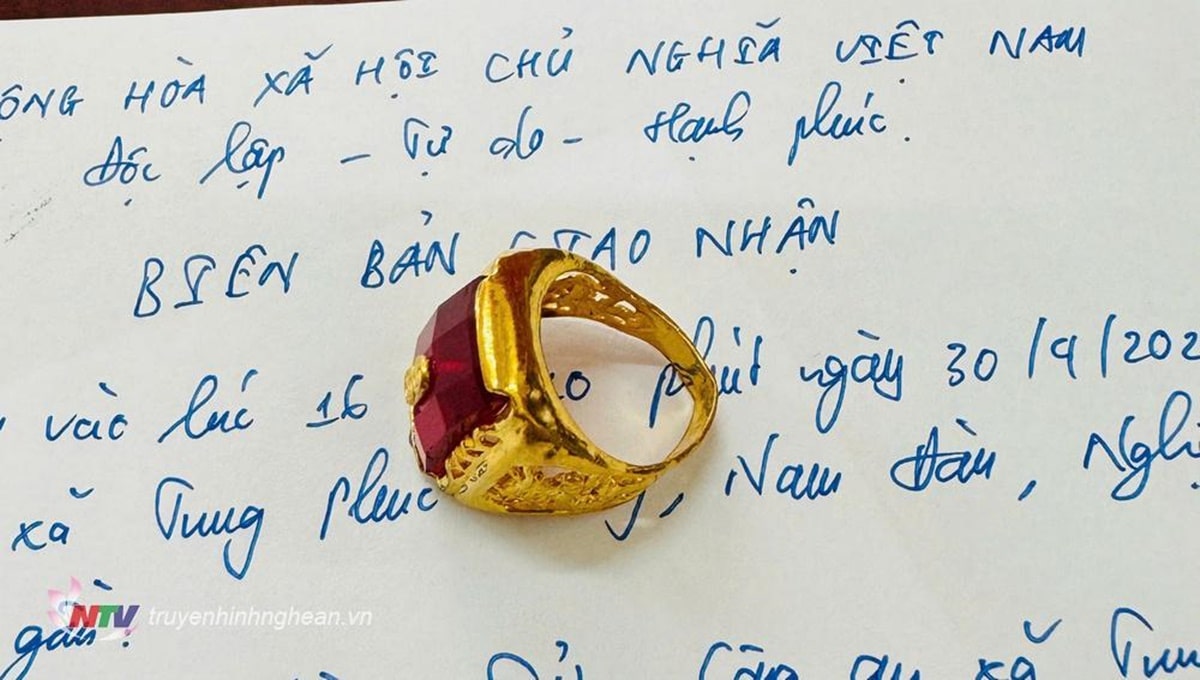 ỘNG HÒA XÃ HỘI CHỦ NGHĨA VIỆT NAM
Độc lập - Tự do - Hạnh phúc.
BIÊN BẢN GIAO NHẬN
vào lúc 16 phút ngày 30/9/202
xã Trung phúc Nam Đàn, Ngh
gồm:
Công an xã Trun
NTV truyenhinhnghean.vn